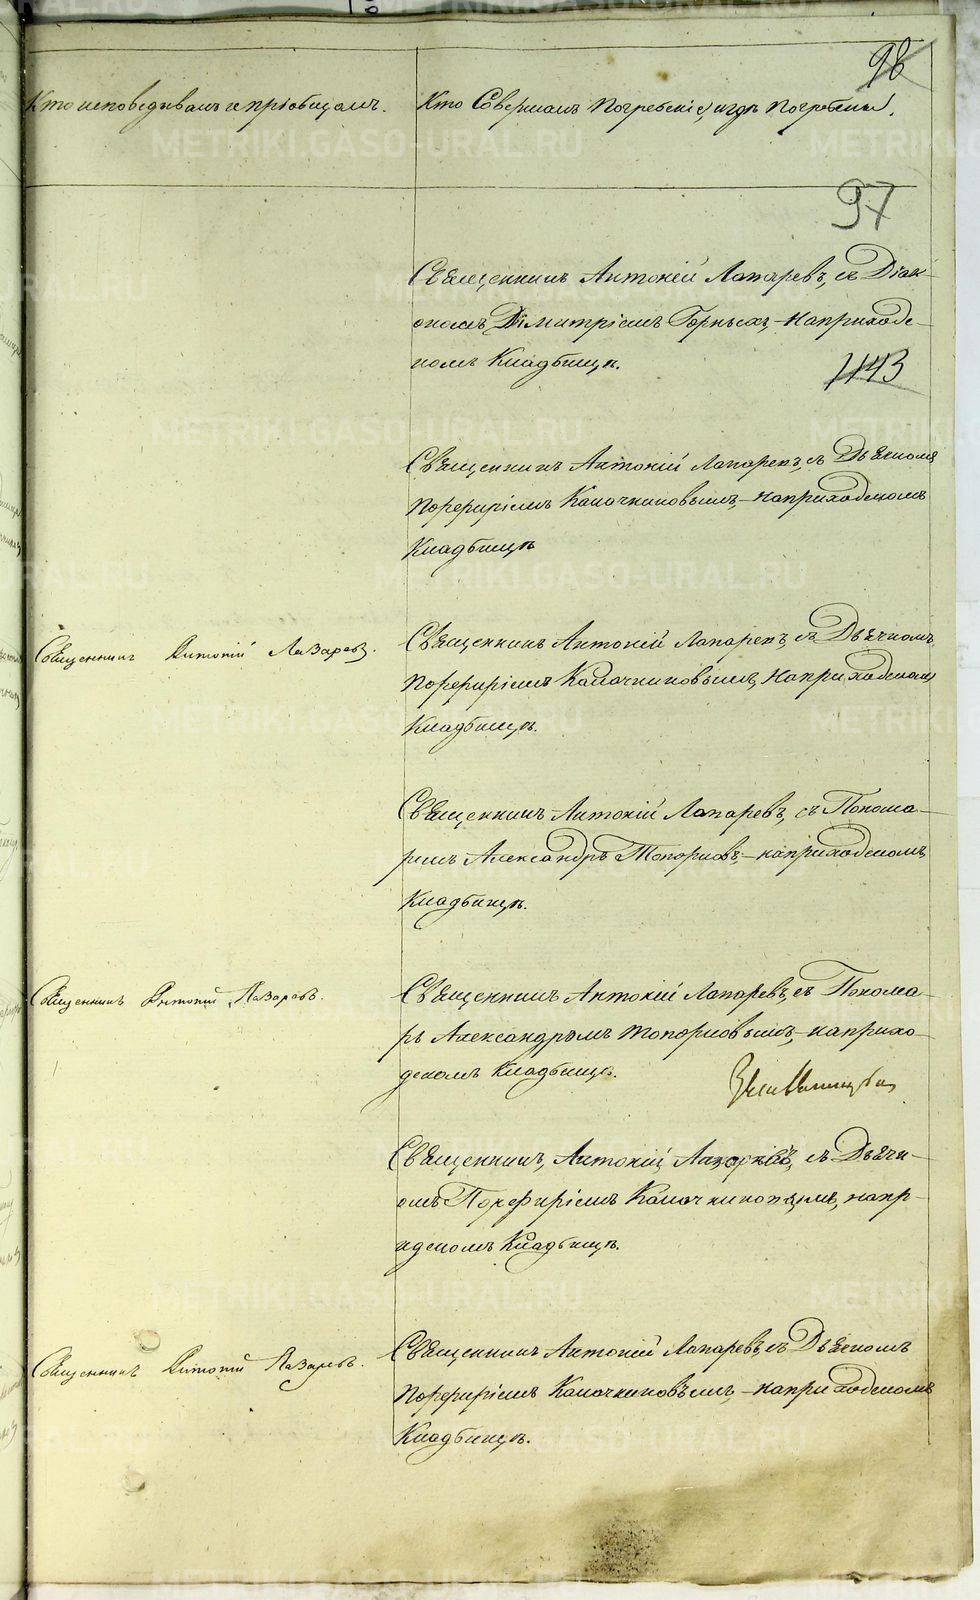 98
Кто исповедывалъ и пріобщалъ.
Кто Совершалъ Погребеніе, и гдѣ Погребены.
97
Священникъ Антоній Лазаревъ, съ Діак-
ономъ Димитріемъ Горныхъ, на приходс-
комъ Кладбищѣ.
1143
Священникъ Антоній Лазаревъ, съ Дьячкомъ
Порфиріемъ Калочниковымъ, на приходскомъ
Кладбищѣ
Священникъ Антоній Лазаревъ.
Священникъ Антоній Лазаревъ, съ Дьячкомъ
Порфиріемъ Калочниковымъ, на приходскомъ
Кладбищѣ.
Священникъ Антоній Лазаревъ, съ Понома-
ремъ Александръ Топорковъ, на приходскомъ
Кладбищѣ.
Священникъ Антоній Лазаревъ.
Священникъ Антоній Лазаревъ, съ Понома-
рь Александромъ Топорковымъ, на прихо-
дскомъ Кладбищѣ.
Священникъ, Антоній, Лазаревъ, съ Дьячк-
омъ Порфиріемъ Калочниковымъ, на пр-
идскомъ Кладбищѣ.
Священникъ Антоній Лазаревъ.
Священникъ Антоній Лазаревъ, съ Дьячкомъ
Порфиріемъ Калочниковымъ, на приходскомъ
Кладбищѣ.
METRIKI.GASO-URAL.RU